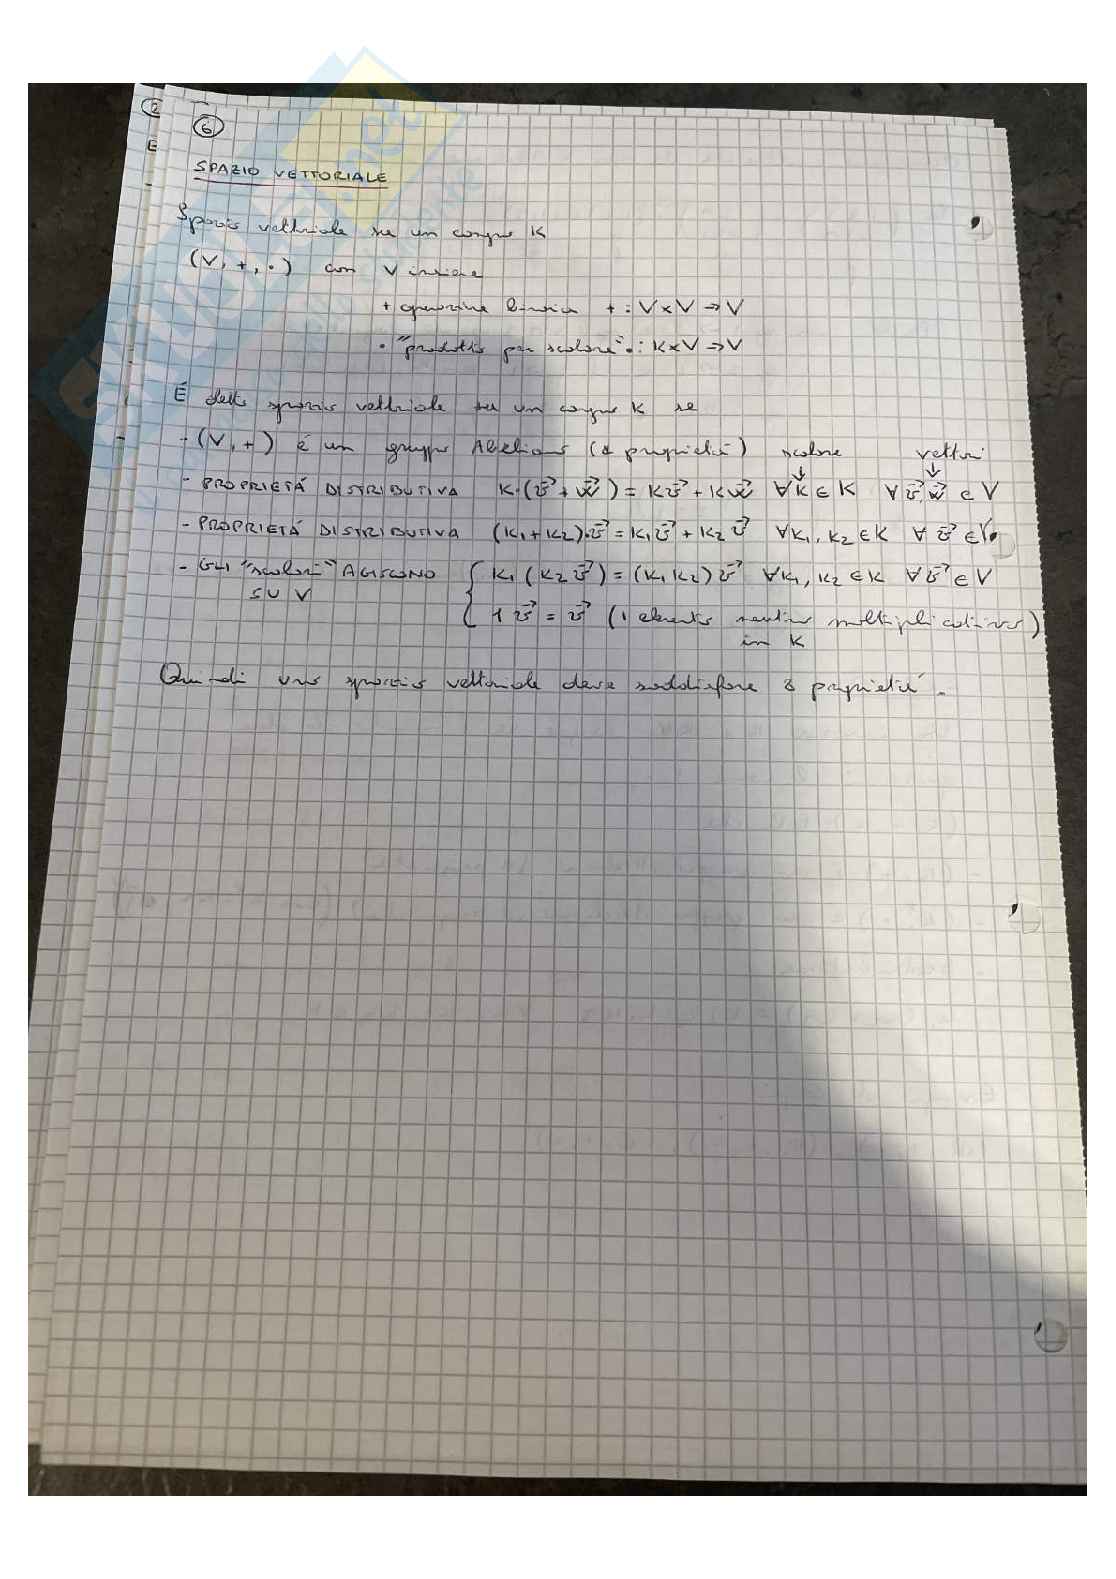 6
SPAZIO VETTORIALE
Spazio vettoriale su un campo K
(V, +, ·) con V insieme
+ operazione binaria + : V×V → V
· "prodotto per scalare" · : K×V → V
É detto spazio vettoriale su un campo K se
- (V, +) é un gruppo Abeliano (4 proprietá) scalare vettori
- PROPRIETÁ DISTRIBUTIVA K·(v⃗ + w⃗) = Kv⃗ + Kw⃗ ∀K ∈ K ∀ v⃗, w⃗ ∈ V
- PROPRIETÁ DISTRIBUTIVA (K₁+K₂)·v⃗ = K₁v⃗ + K₂v⃗ ∀K₁, K₂ ∈ K ∀ v⃗ ∈ V
- GLI "scalari" AGISCONO K₁(K₂v⃗) = (K₁K₂)v⃗ ∀K₁, K₂ ∈ K ∀v⃗ ∈ V
SU V
1v⃗ = v⃗ (1 elemento neutro moltiplicativo)
in K
Quindi uno spazio vettoriale deve soddisfare 8 proprietá.